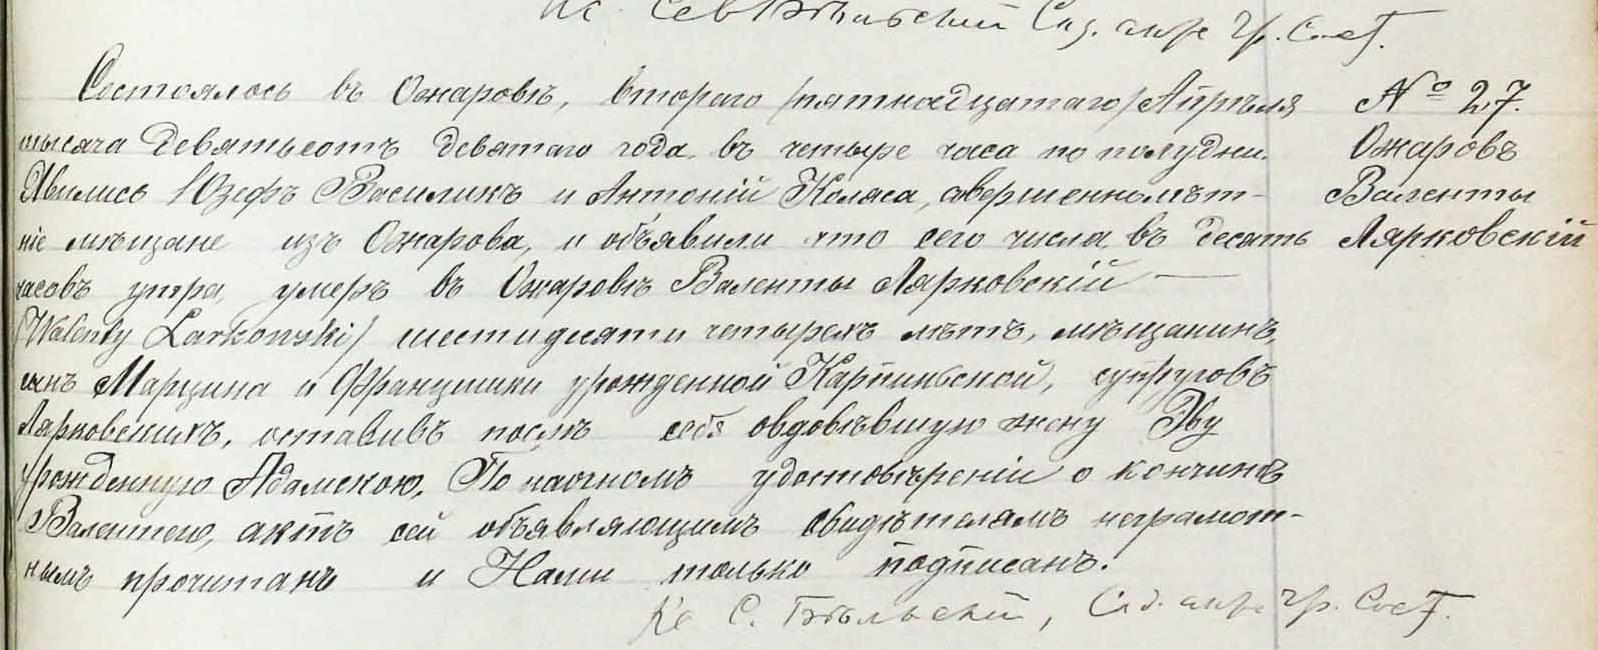 Кс. С. Бѣльскій Сод. акты гр. Сост.
Состоялось въ Ожаровѣ, втораго /пятнадцатаго/ Апрѣля
тысяча девятьсотъ девятаго года въ четыре часа по полудни.
Явились Юзефъ Василикъ и Антоній Коляса, совершеннолѣт-
ніе мѣщане изъ Ожарова, и объявили что сего числа въ десять
часовъ утра, умеръ въ Ожаровѣ Валенты Лярковскій —
/Walenty Larkowski/ шестидесяти четырехъ лѣтъ, мѣщанинъ,
сынъ Марцина и Францишки урожденной Карпиньской, супруговъ
Лярковскихъ, оставивъ послѣ себя овдовѣвшую жену Эву
урожденную Адамскою. По наочномъ удостовѣреніи о кончинѣ
Валентего, актъ сей объявляющимъ свидѣтелямъ неграмот-
нымъ прочитанъ и Нами только подписанъ.
Кс С. Бѣльскій, Сод. акты гр. Сост.
№ 27.
Ожаровъ
Валенты
Лярковскій